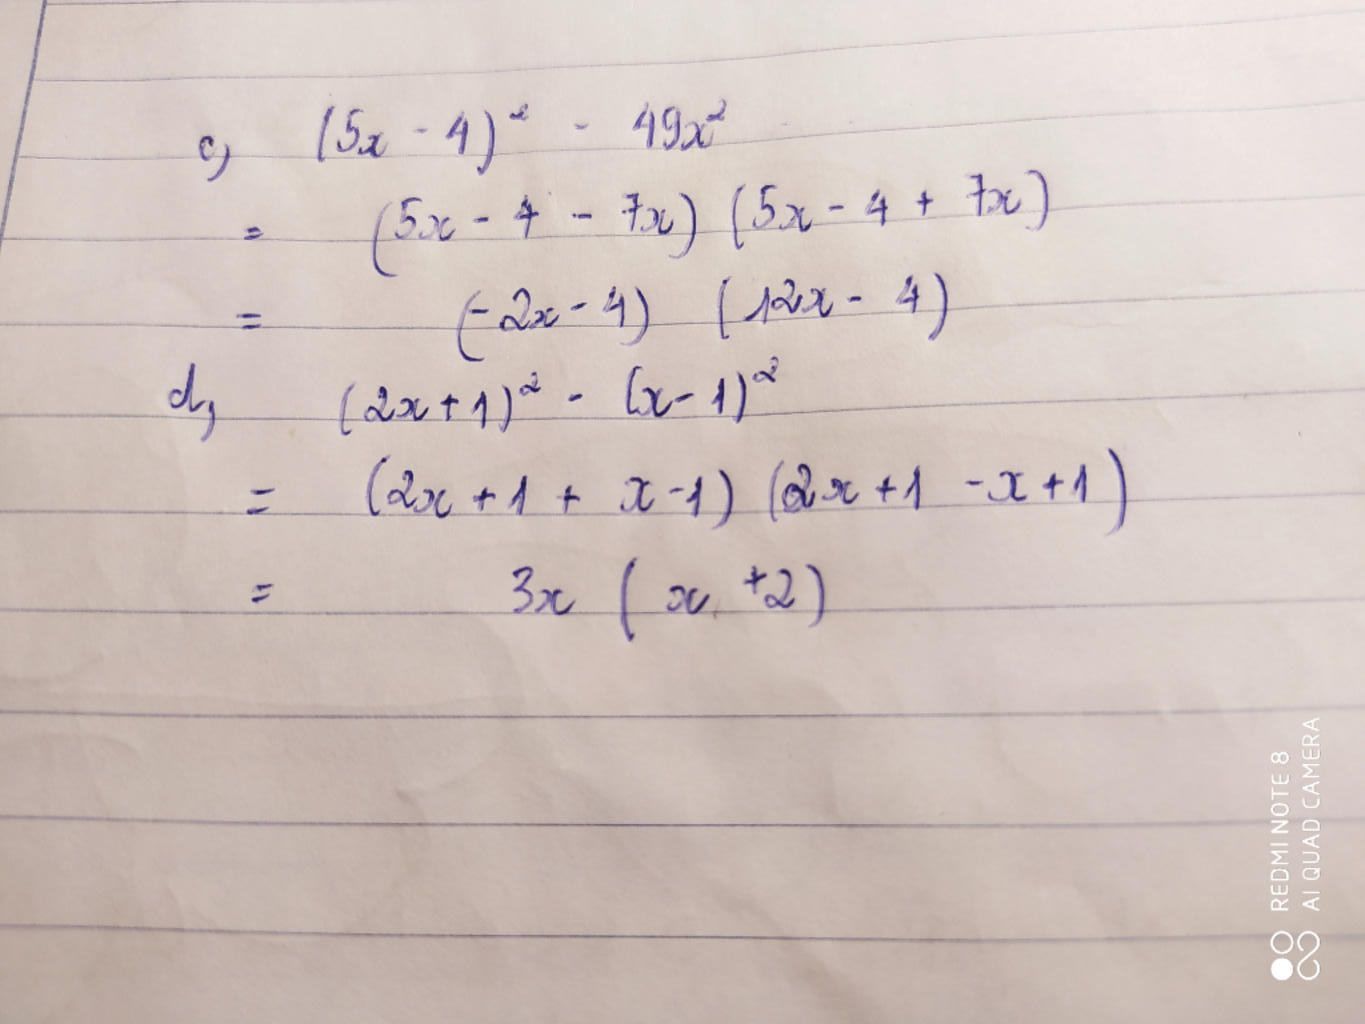 c, (5x - 4)² - 49x²
= (5x - 4 - 7x) (5x - 4 + 7x)
= (-2x - 4) (12x - 4)
d, (2x + 1)² - (x - 1)²
= (2x + 1 + x - 1) (2x + 1 - x + 1)
= 3x (x + 2)
REDMI NOTE 8
AI QUAD CAMERA